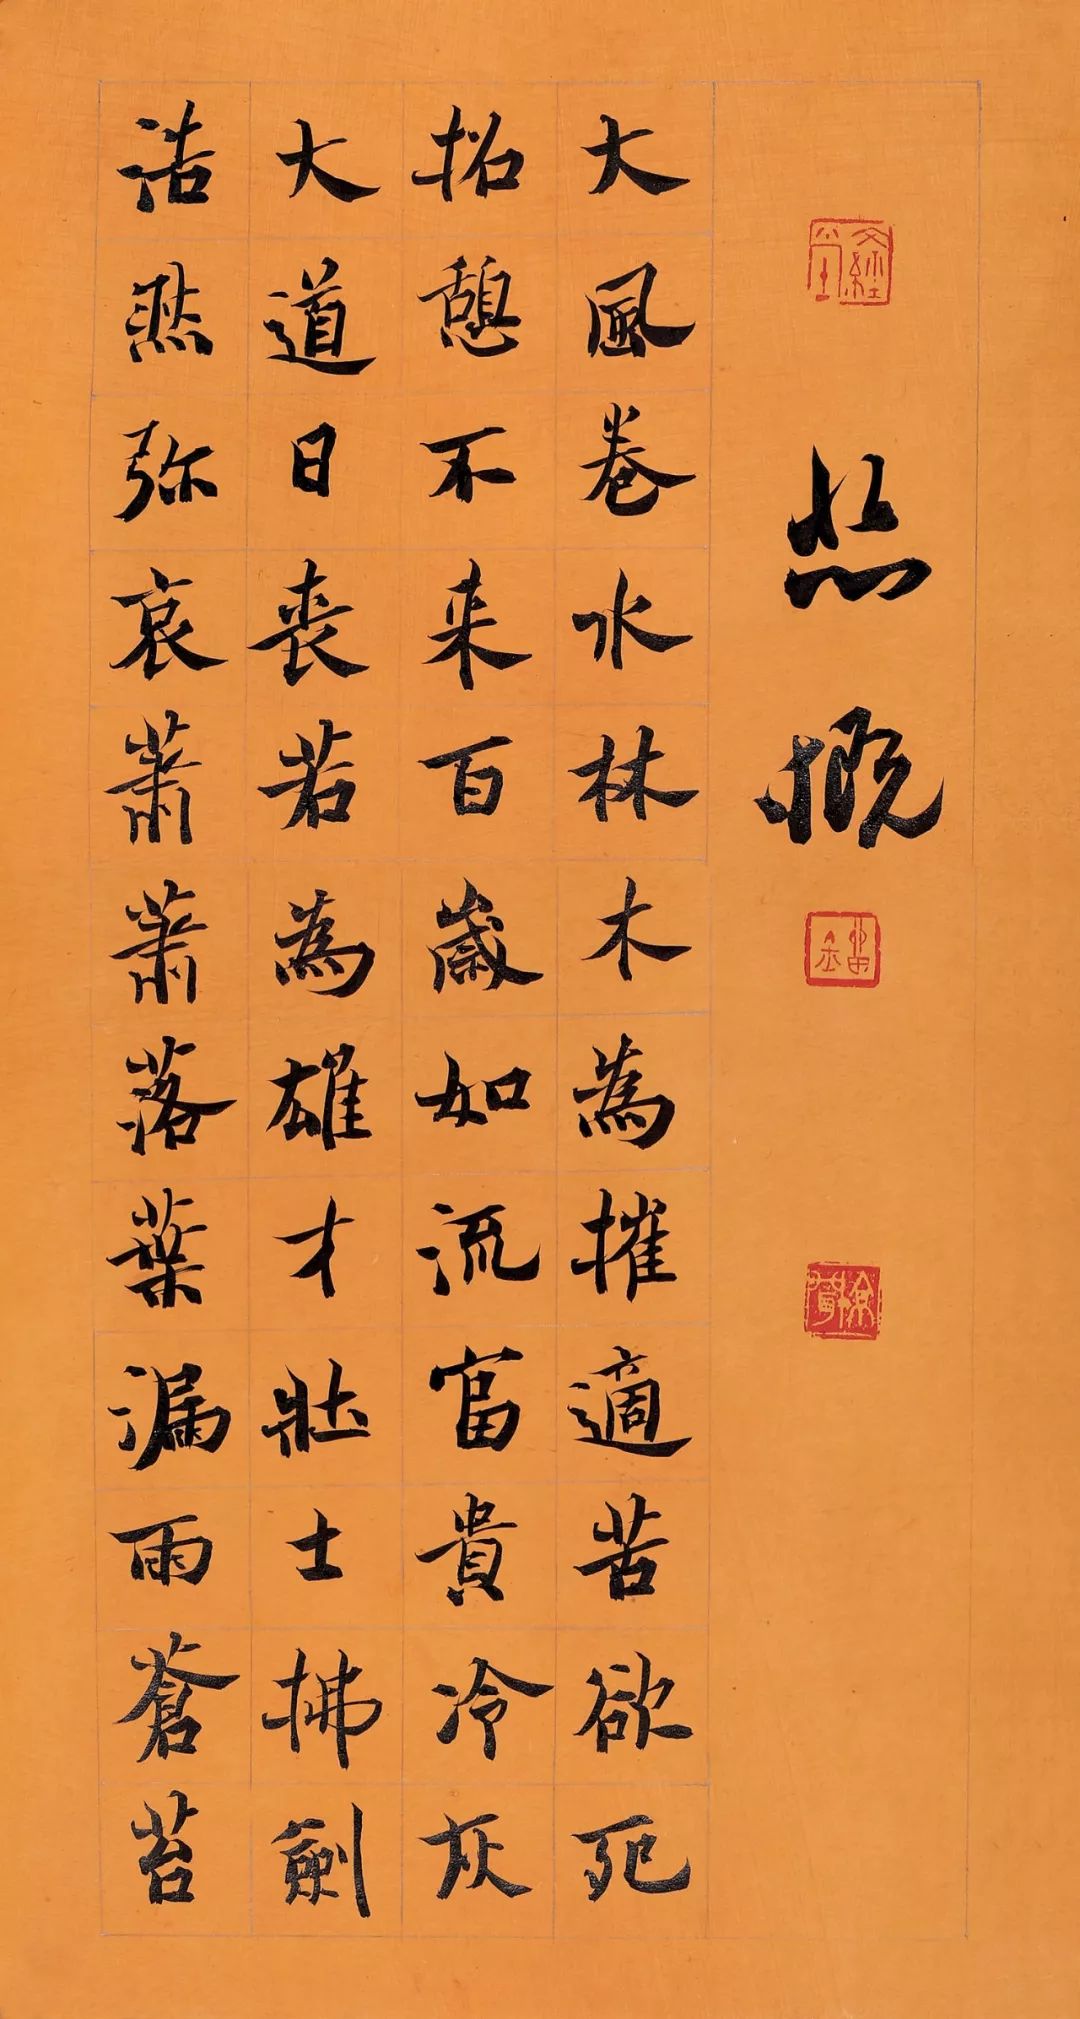 悲慨
大風卷水林木為摧適苦欲死
招憩不来百歲如流富貴冷灰
大道日喪若為雄才壯士拂劍
浩然弥哀蕭蕭落葉漏雨蒼苔